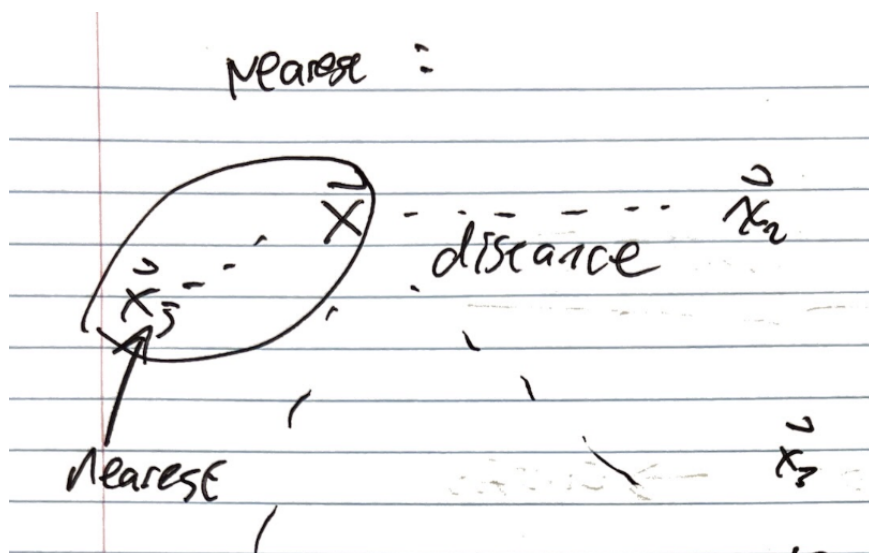 Nearest :
x⃗ x⃗₂
distance
x⃗₅
nearest
x⃗₃